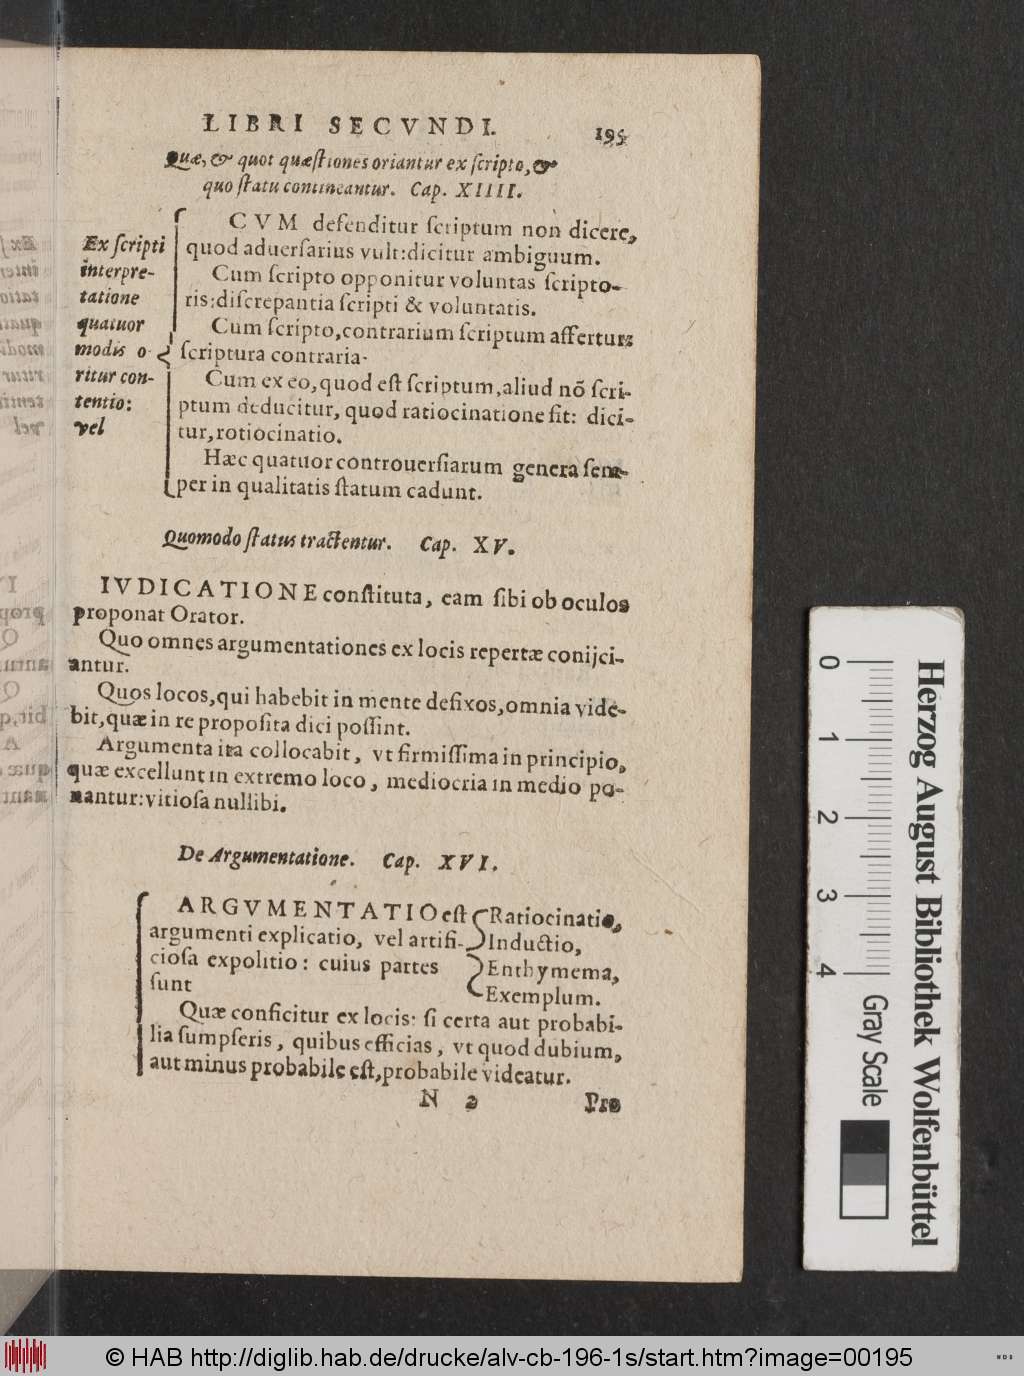 LIBRI SECVNDI. 195
Quæ, & quot quæſtiones oriantur ex ſcripto, &
quo ſtatu contineantur. Cap. XIIII.
Ex ſcripti
interpre-
tatione
quatuor
modis o-
ritur con-
tentio:
vel
CVM defenditur ſcriptum non dicere,
quod aduerſarius vult: dicitur ambiguum.
Cum ſcripto opponitur voluntas ſcripto-
ris: diſcrepantia ſcripti & voluntatis.
Cum ſcripto, contrarium ſcriptum affertur:
ſcriptura contraria.
Cum ex eo, quod eſt ſcriptum, aliud nõ ſcri-
ptum deducitur, quod ratiocinatione fit: dici-
tur, rotiocinatio.
Hæc quatuor controuerſiarum genera ſem-
per in qualitatis ſtatum cadunt.
Quomodo ſtatus tractentur. Cap. XV.
IVDICATIONE conſtituta, eam ſibi ob oculos
proponat Orator.
Quo omnes argumentationes ex locis repertæ conijci-
antur.
Quos locos, qui habebit in mente defixos, omnia vide-
bit, quæ in re propoſita dici poſſint.
Argumenta ita collocabit, vt firmiſſima in principio,
quæ excellunt in extremo loco, mediocria in medio po-
nantur: vitioſa nullibi.
De Argumentatione. Cap. XVI.
ARGVMENTATIO eſt
argumenti explicatio, vel artifi-
cioſa expolitio: cuius partes
ſunt
Ratiocinatio,
Inductio,
Enthymema,
Exemplum.
Quæ conficitur ex locis: ſi certa aut probabi-
lia ſumpſeris, quibus efficias, vt quod dubium,
aut minus probabile eſt, probabile videatur.
N 2 Pro
0 1 2 3 4
Herzog August Bibliothek Wolfenbüttel
Gray Scale
© HAB http://diglib.hab.de/drucke/alv-cb-196-1s/start.htm?image=00195